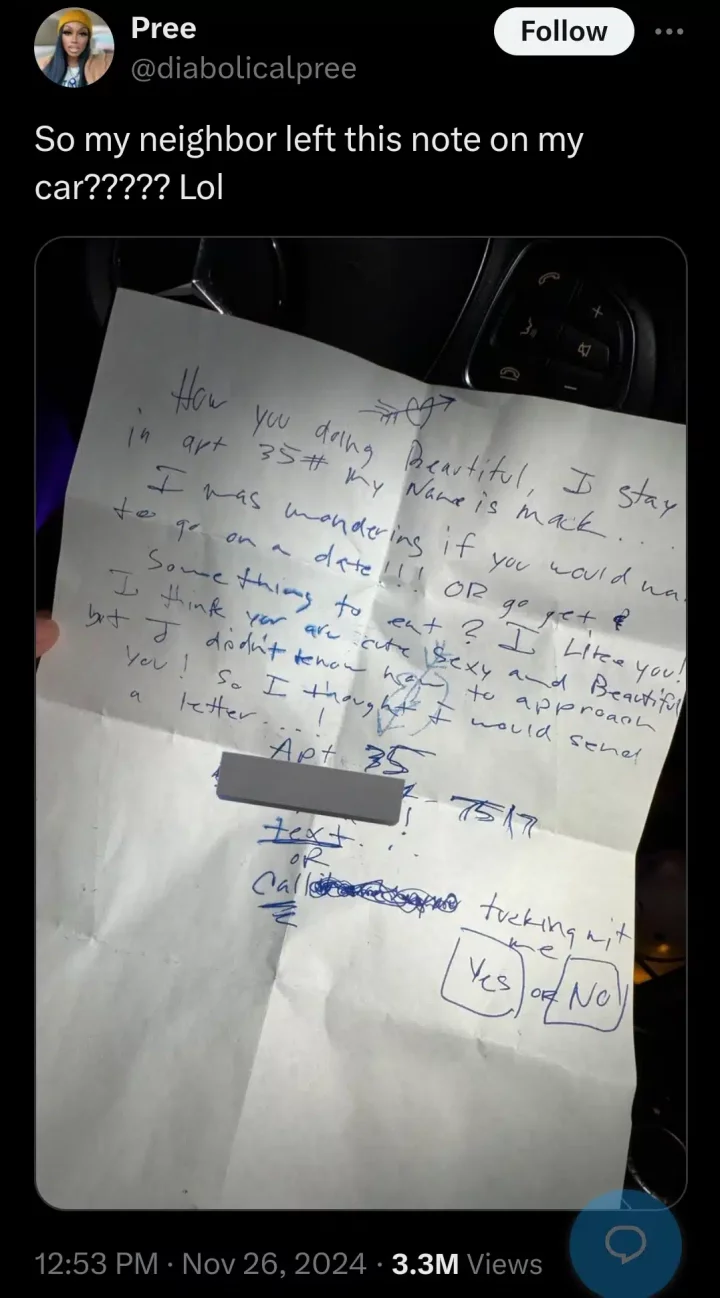 Pree
Follow
@diabolicalpree
So my neighbor left this note on my
car????? Lol
How you doing Beautiful, I stay
in apt 35# my Name is mack...
I was wondering if you would wa
to go on a date!!! OR go get
Something to eat? I Like you!
I think you are cute Sexy and Beautiful
but I didn't know how to approach
you! So I thought I would send
a letter....!
Apt 35
- 7517
text...!
OR
Call
fucking wit
me
Yes OR No
12:53 PM · Nov 26, 2024 · 3.3M Views